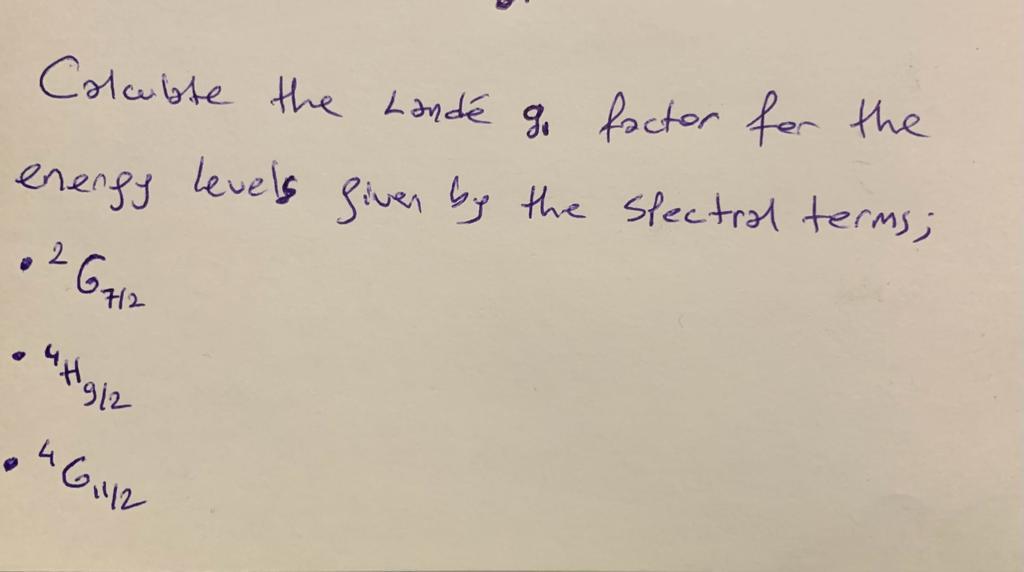 Calculate the Landé g. factor for the
energy levels given by the spectral terms;
• ²G₇/₂
• ⁴H₉/₂
• ⁴G₁₁/₂